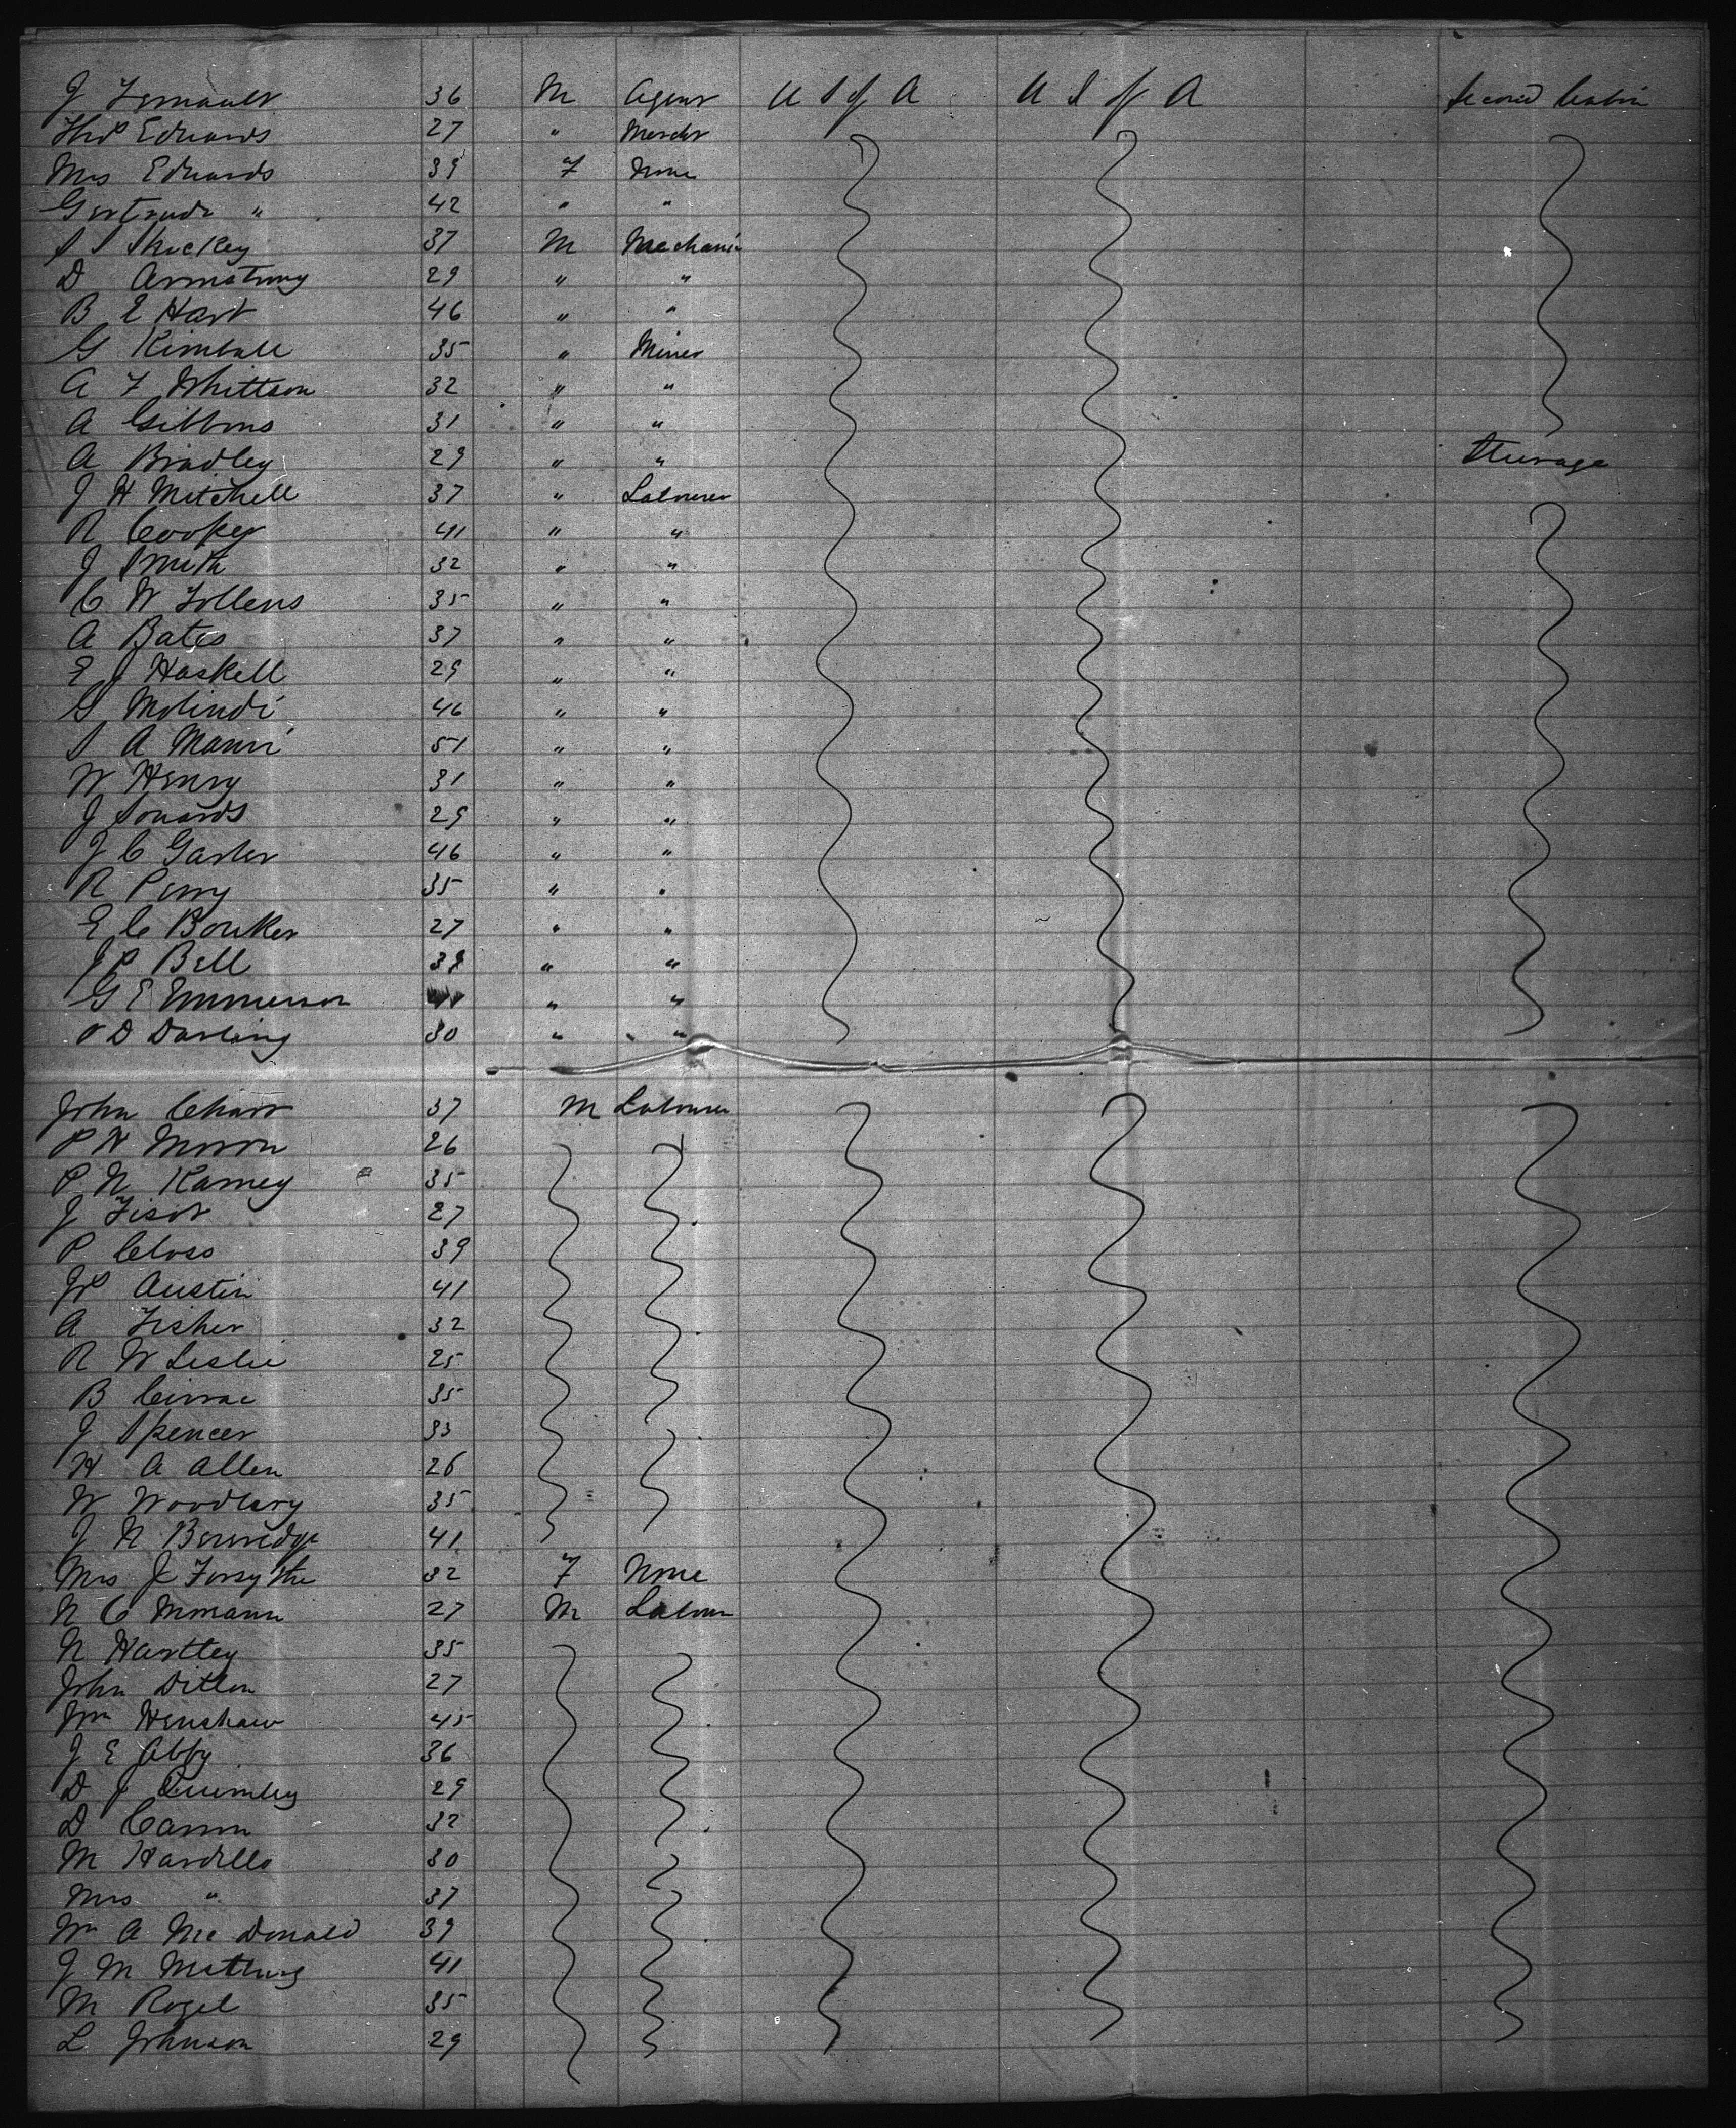 J 36 M Agent U S of A U S of A Second Cabin
Thos Edwards 27 " Mercht
Mrs Edwards 39 F None
Gertrude " 42 " "
S S 37 M Mechanic
D Armstrong 29 " "
B E Hart 46 " "
G Kimball 35 " Miner
A F Whittson 32 " "
A Gibbons 31 " "
A Bradley 29 " " Steerage
J H Mitchell 37 " Labourer
R Cooper 41 " "
J Smith 32 " "
C W Follens 35 " "
A Bates 37 " "
E J Haskell 29 " "
G Molindi 46 " "
S A Mann 51 " "
W Henry 31 " "
J 29 " "
J C Garter 46 " "
R Perry 35 " "
E C Bouker 27 " "
J P Bell 39 " "
G E Emmerson " "
D Darling 30 " "
John 37 M Labourer
P H 26
P N Kamey 35
J 27
P Closs 39
Austin 41
A Fisher 32
R W Leslie 25
B 35
J Spencer 33
H A Allen 26
W 35
J N 41
Mrs J Forsythe 32 F None
N C 27 M Labour
N Hartley 35
John Dillon 27
Wm Henshaw 45
J E Abby 36
D J Quimley 29
D 32
M Hardello 30
Mrs " 37
Wm A McDonald 39
J M 41
M Rogel 35
L Johnson 29